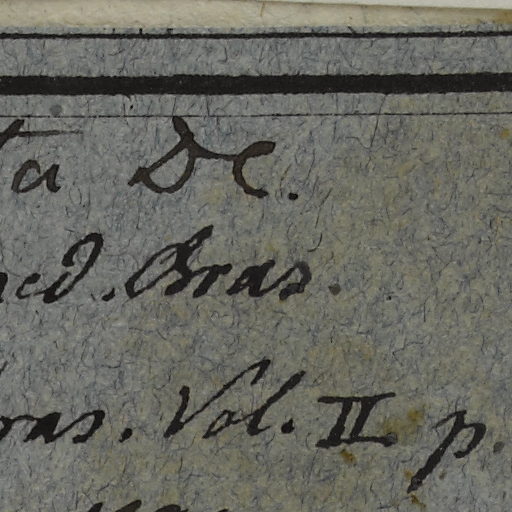 ta DC.
med. Bras.
ras. Vol. II p.